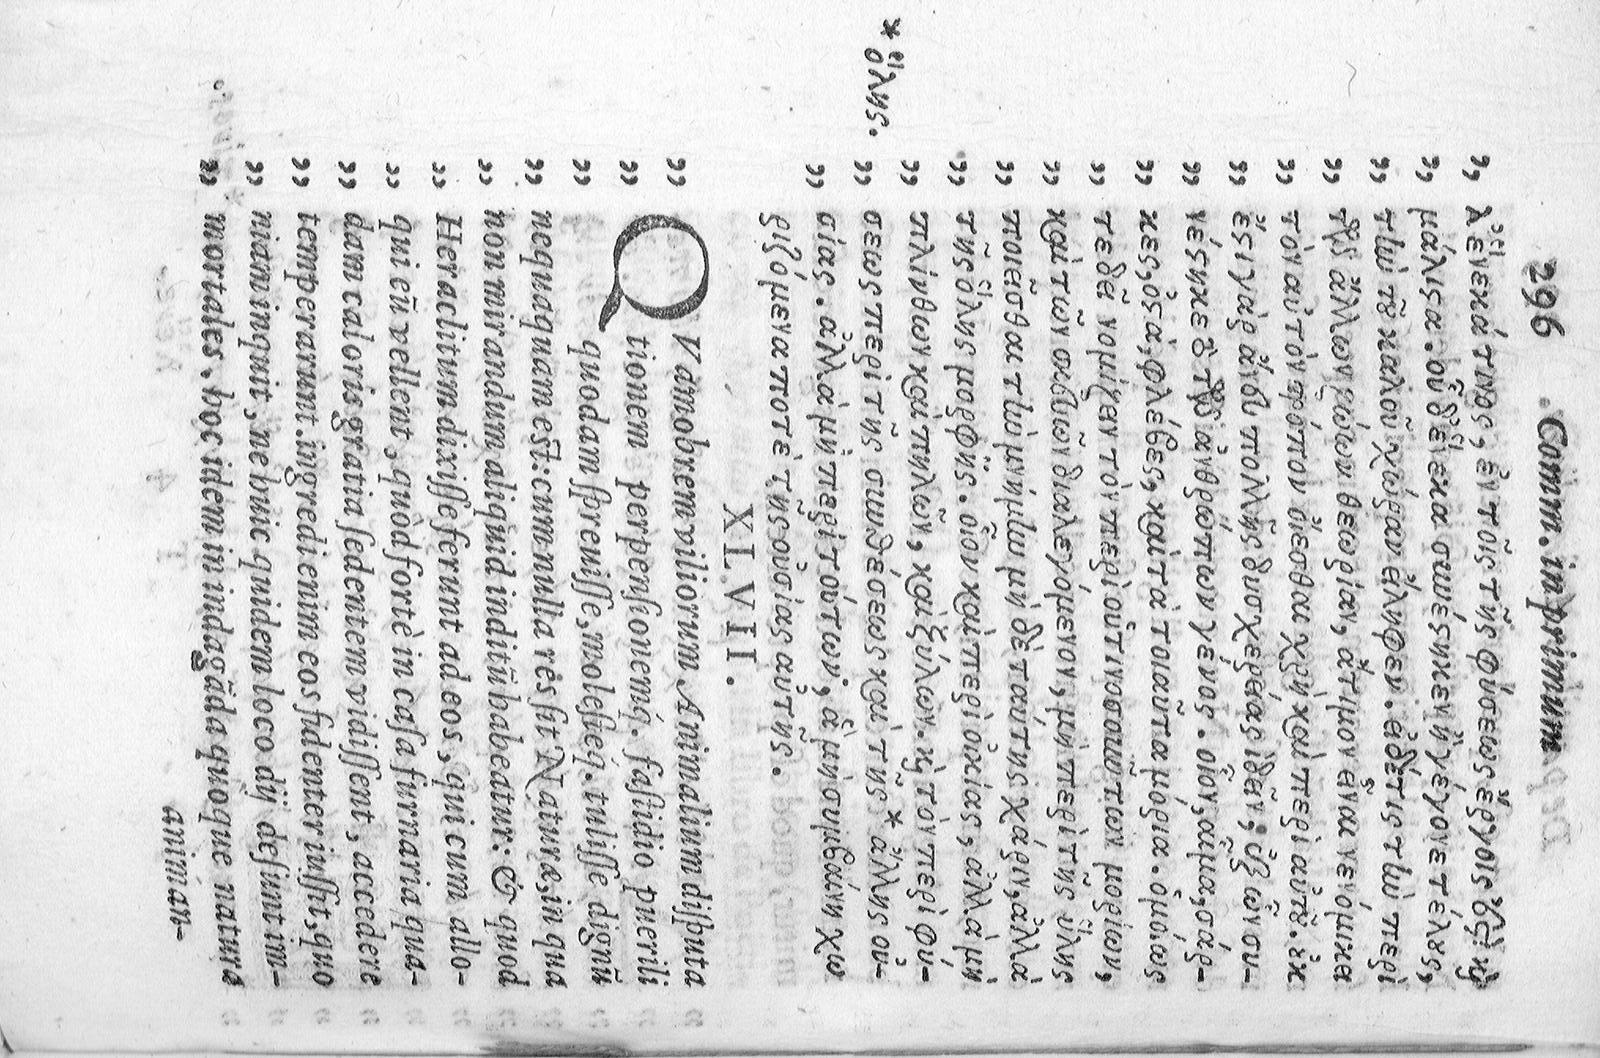 296 Comm. in primum
λ' ἕνεκά τινος, ἐν τοῖς τῆς φύσεως ἔργοις ἐστὶ καὶ
μάλιστα. οὗ δ' ἕνεκα συνέστηκεν ἢ γέγονε τέλους,
τὴν τοῦ καλοῦ χώραν εἴληφεν. εἰ δέ τις τὴν περὶ
τῶν ἄλλων ζώων θεωρίαν, ἄτιμον εἶναι νενόμικε
τὸν αὐτὸν τρόπον οἴεσθαι χρὴ καὶ περὶ αὑτοῦ. οὐκ
ἔστι γὰρ ἄνευ πολλῆς δυσχερείας ἰδεῖν, ἐξ ὧν συ-
νέστηκε τὸ τῶν ἀνθρώπων γένος. οἷον, αἷμα, σάρ-
κες, ὀστᾶ, φλέβες, καὶ τὰ τοιαῦτα μόρια. ὁμοίως
τε δεῖ νομίζειν τὸν περὶ οὑτινοσοῦν τῶν μορίων,
καὶ τῶν σκευῶν διαλεγόμενον, μὴ περὶ τῆς ὕλης
ποιεῖσθαι τὴν μνήμην μηδὲ ταύτης χάριν, ἀλλὰ
τῆς ὅλης μορφῆς. οἷον καὶ περὶ οἰκίας, ἀλλὰ μὴ
πλίνθων καὶ πηλῶν, καὶ ξύλων. καὶ τὸν περὶ φύ-
σεως περὶ τῆς συνθέσεως καὶ τῆς * ἄλλης οὐ-
* ὅλης.
σίας. ἀλλὰ μὴ περὶ τούτων, ἃ μὴ συμβαίνει χω
ριζόμενα ποτὲ τῆς οὐσίας αὐτῆς.
XLVII.
„ QVamobrem viliorum Animalium disputa
„ tionem perpensionemq́. fastidio puerili
„ quodam spreuisse, molestèq́. tulisse dignũ
„ nequaquam est: cum nulla res sit Naturæ, in qua
„ non mirandum aliquid inditũ habeatur: & quod
„ Heraclitum dixisse ferunt ad eos, qui cum allo-
„ qui eũ vellent, quòd fortè in casa furnaria qua-
„ dam caloris gratia sedentem vidissent, accedere
„ temperarunt. ingredi enim eos fidenter iussit, quo
„ niam inquit, ne huic quidem loco dij desunt im-
„ mortales. hoc idem in indagãda quoque natura
animan-